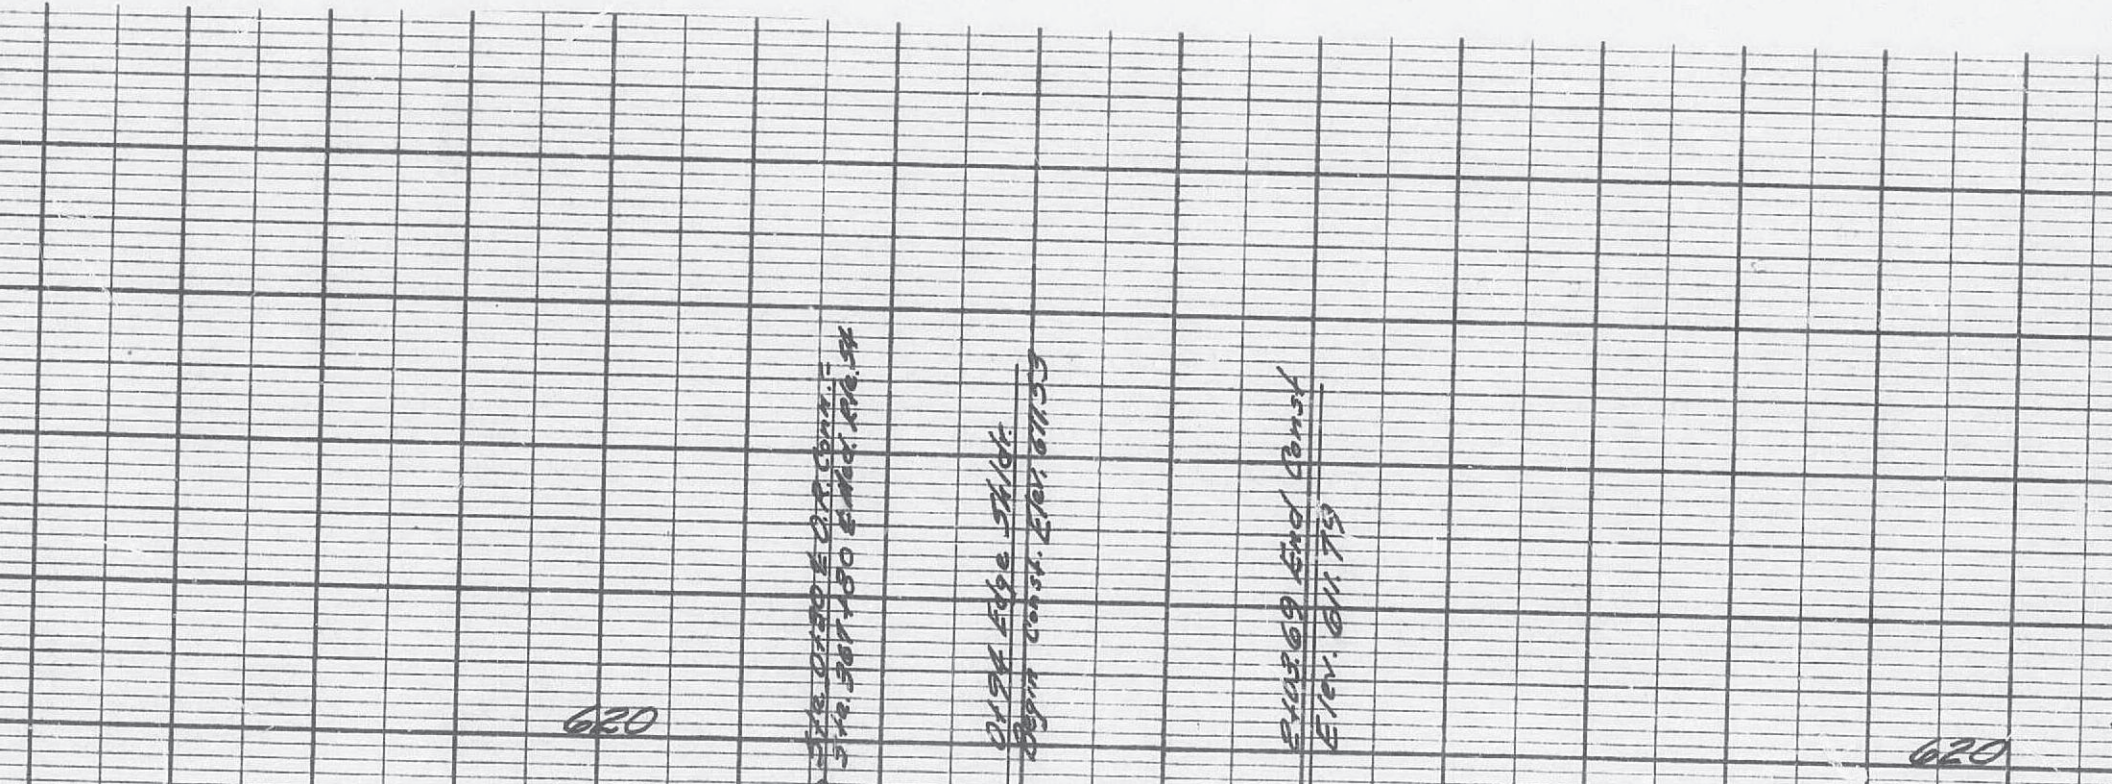 620
Sta. 0+80 ℄ O.R. Conn. =
Sta. 367+80 ℄ Med. Rte. 54
0+94 Edge Shldr.
Begin Const. Elev. 611.53
2+03.69 End Const
Elev. 611.79
620